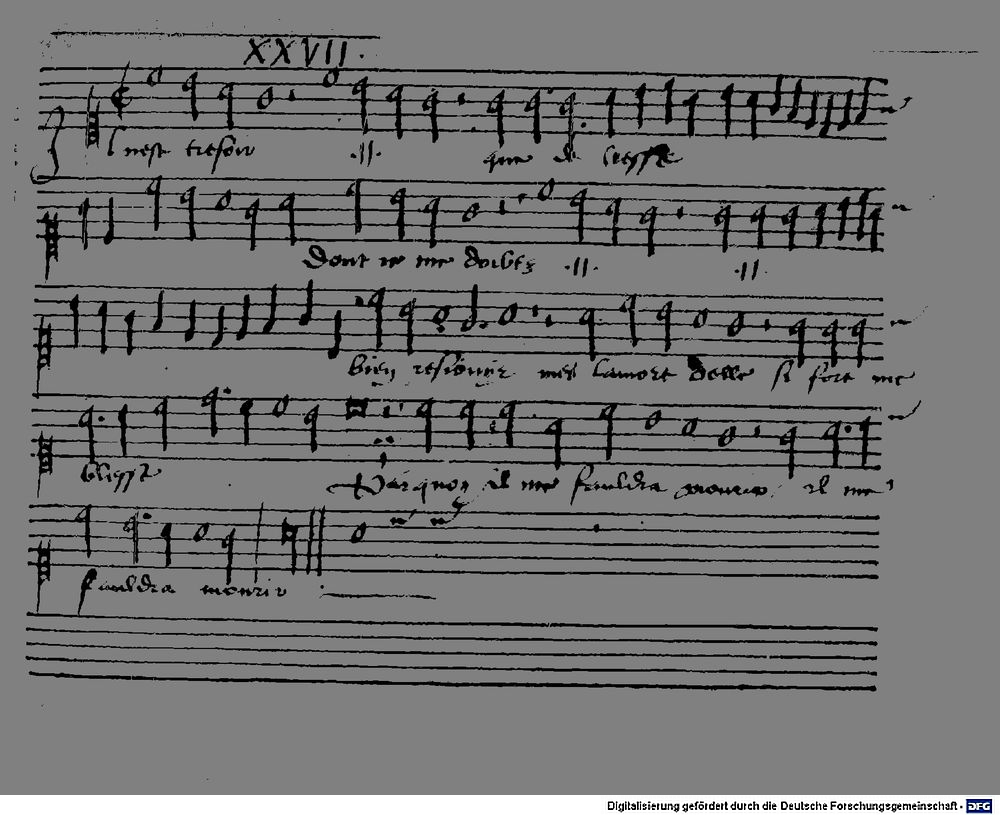 XXVII.
Il nest tresor .//. que de lyesse
Dont ie me doibtz .//. .//.
bien resiouir mes lamort delle si fort me
blesse
Parquoy il me fauldra mourir il me
fauldra mourir
Digitalisierung gefördert durch die Deutsche Forschungsgemeinschaft - DFG